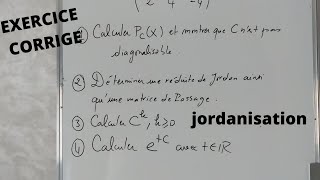 EXERCICE
CORRIGE
( 2 4 -4 )
① Calculer P_C(X) et montrer que C n'est pas
diagonalisable.
② Déterminer une réduite de Jordan ainsi
qu'une matrice de Passage.
③ Calculer C^k, k≥0
jordanisation
④ Calculer e^{tC} avec t∈ℝ